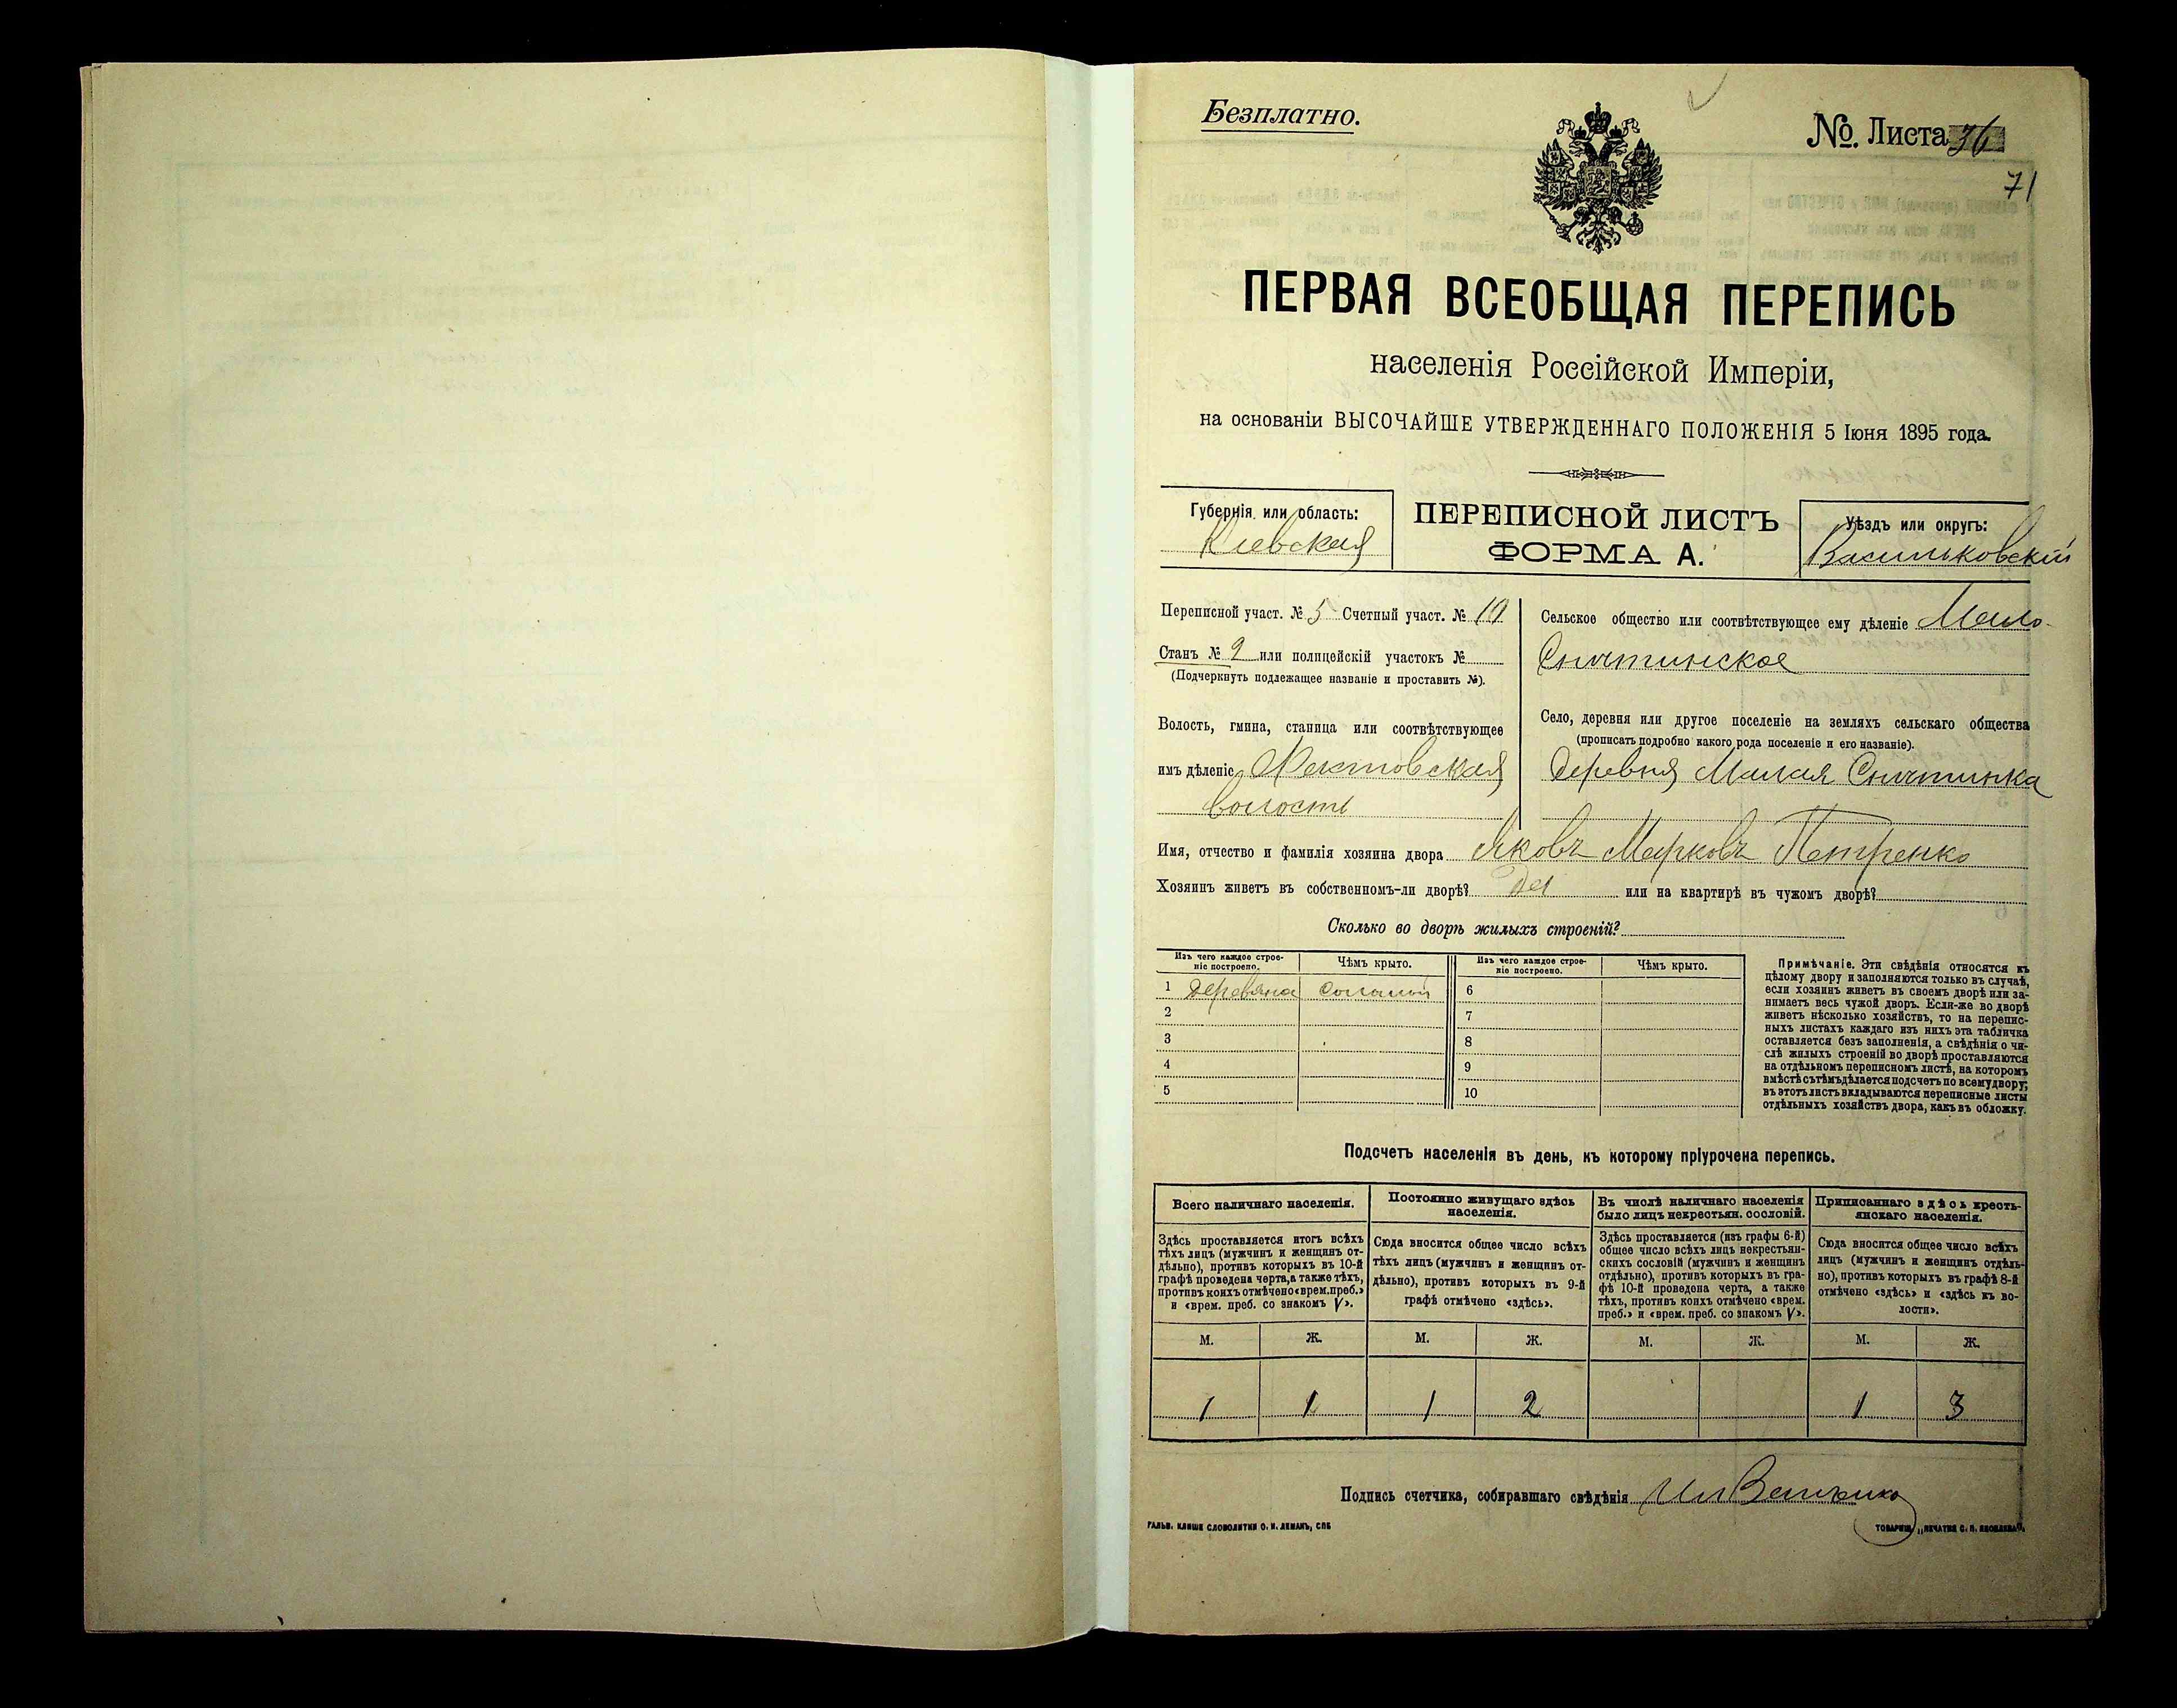 Безплатно.
№. Листа 36
71
ПЕРВАЯ ВСЕОБЩАЯ ПЕРЕПИСЬ
населенія Россійской Имперіи,
на основаніи ВЫСОЧАЙШЕ УТВЕРЖДЕННАГО ПОЛОЖЕНІЯ 5 Іюня 1895 года.
Губернія или область:
Киевская
ПЕРЕПИСНОЙ ЛИСТЪ
ФОРМА А.
Уѣздъ или округъ:
Васильковскій
Переписной участ. № 5 Счетный участ. № 19
Станъ № 2 или полицейскій участокъ №
(Подчеркнуть подлежащее названіе и проставить №).
Волость, гмина, станица или соотвѣтствующее
имъ дѣленіе
волость
Сельское общество или соотвѣтствующее ему дѣленіе Мало-
Снитинское
Село, деревня или другое поселеніе на земляхъ сельскаго общества
(прописать подробно какого рода поселеніе и его названіе).
Деревня Малая Снитинка
Имя, отчество и фамилія хозяина двора Яковъ Марковъ Петренко
Хозяинъ живетъ въ собственномъ-ли дворѣ? Да или на квартирѣ въ чужомъ дворѣ?
Сколько во дворѣ жилыхъ строеній?
Изъ чего каждое строе-
ніе построено.
Чѣмъ крыто.
Изъ чего каждое строе-
ніе построено.
Чѣмъ крыто.
1 деревяна соломой 6
2 7
3 8
4 9
5 10
Примѣчаніе. Эти свѣдѣнія относятся къ
цѣлому двору и заполняются только въ случаѣ,
если хозяинъ живетъ въ своемъ дворѣ или за-
нимаетъ весь чужой дворъ. Если-же во дворѣ
живетъ нѣсколько хозяйствъ, то на перепис-
ныхъ листахъ каждаго изъ нихъ эта табличка
оставляется безъ заполненія, а свѣдѣнія о чи-
слѣ жилыхъ строеній во дворѣ проставляются
на отдѣльномъ переписномъ листѣ, на которомъ
вмѣстѣ съ тѣмъ дѣлается подсчетъ по всему двору;
въ этотъ листъ вкладываются переписные листы
отдѣльныхъ хозяйствъ двора, какъ въ обложку.
Подсчетъ населенія въ день, къ которому пріурочена перепись.
Всего наличнаго населенія.
Здѣсь проставляется итогъ всѣхъ
тѣхъ лицъ (мужчинъ и женщинъ от-
дѣльно), противъ которыхъ въ 10-й
графѣ проведена черта, а также тѣхъ,
противъ коихъ отмѣчено «врем. преб.»
и «врем. преб. со знакомъ V».
Постоянно живущаго здѣсь
населенія.
Сюда вносится общее число всѣхъ
тѣхъ лицъ (мужчинъ и женщинъ от-
дѣльно), противъ которыхъ въ 9-й
графѣ отмѣчено «здѣсь».
Въ числѣ наличнаго населенія
было лицъ некрестьян. сословій.
Здѣсь проставляется (изъ графы 6-й)
общее число всѣхъ лицъ некрестьян-
скихъ сословій (мужчинъ и женщинъ
отдѣльно), противъ которыхъ въ гра-
фѣ 10-й проведена черта, а также
тѣхъ, противъ коихъ отмѣчено «врем.
преб.» и «врем. преб. со знакомъ V».
Приписаннаго здѣсь кресть-
янскаго населенія.
Сюда вносится общее число всѣхъ
лицъ (мужчинъ и женщинъ отдѣль-
но), противъ которыхъ въ графѣ 8-й
отмѣчено «здѣсь» и «здѣсь къ во-
лости».
М. Ж. М. Ж. М. Ж. М. Ж.
1 1 1 2 1 3
Подпись счетчика, собиравшаго свѣдѣнія
ГАЛЬВ. КЛИШЕ СЛОВОЛИТНИ О. И. ЛЕМАНЪ, СПБ
ТОВАРИЩ. „ПЕЧАТНЯ С. П. ЯКОВЛЕВА".